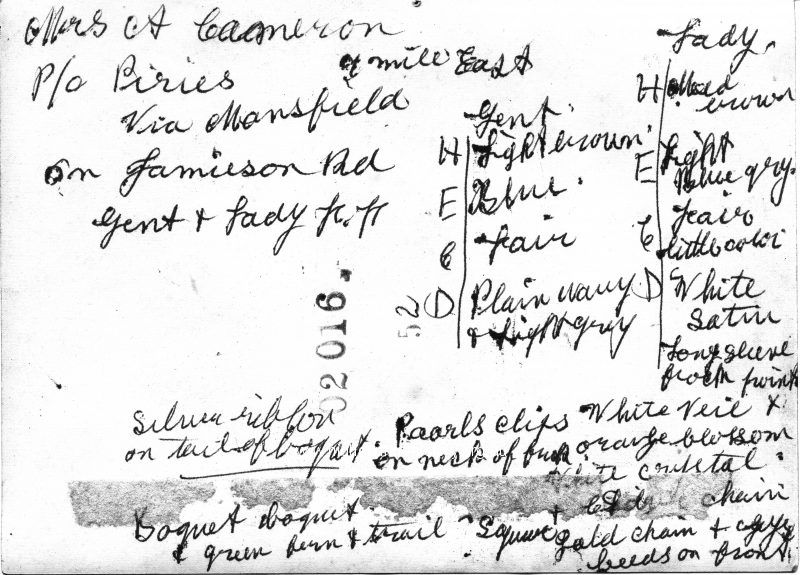 Mrs A Cameron
P/o Piries 4 mile East
Via Mansfield
On Jamieson Rd
Gent & Lady
Gent.
H Light brown.
E Blue.
C Fair
D Plain navy
& light grey
Lady.
H Med
brown
E Light
Blue grey.
C Fair
little color
D White
Satin
Long sleeve
frock
02016.
52
Silver ribbon
on tail of boquet.
Paarls clips
on neck of
White Veil &
orange blossom
crustal
chain
Boquet
& green fern & trail
Square
gold chain &
beeds on front